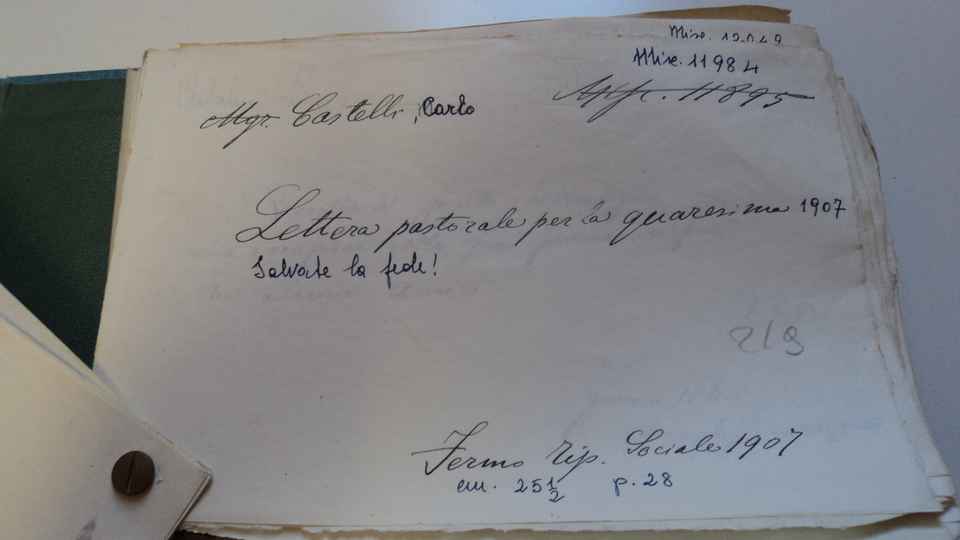 Misc. 12049
Misc. 11984
App. 11895
Mgr. Castelli, Carlo
Lettera pastorale per la quaresima 1907
Salvate la fede!
219
Fermo Tip. Sociale 1907
cm. 25 1/2 p. 28